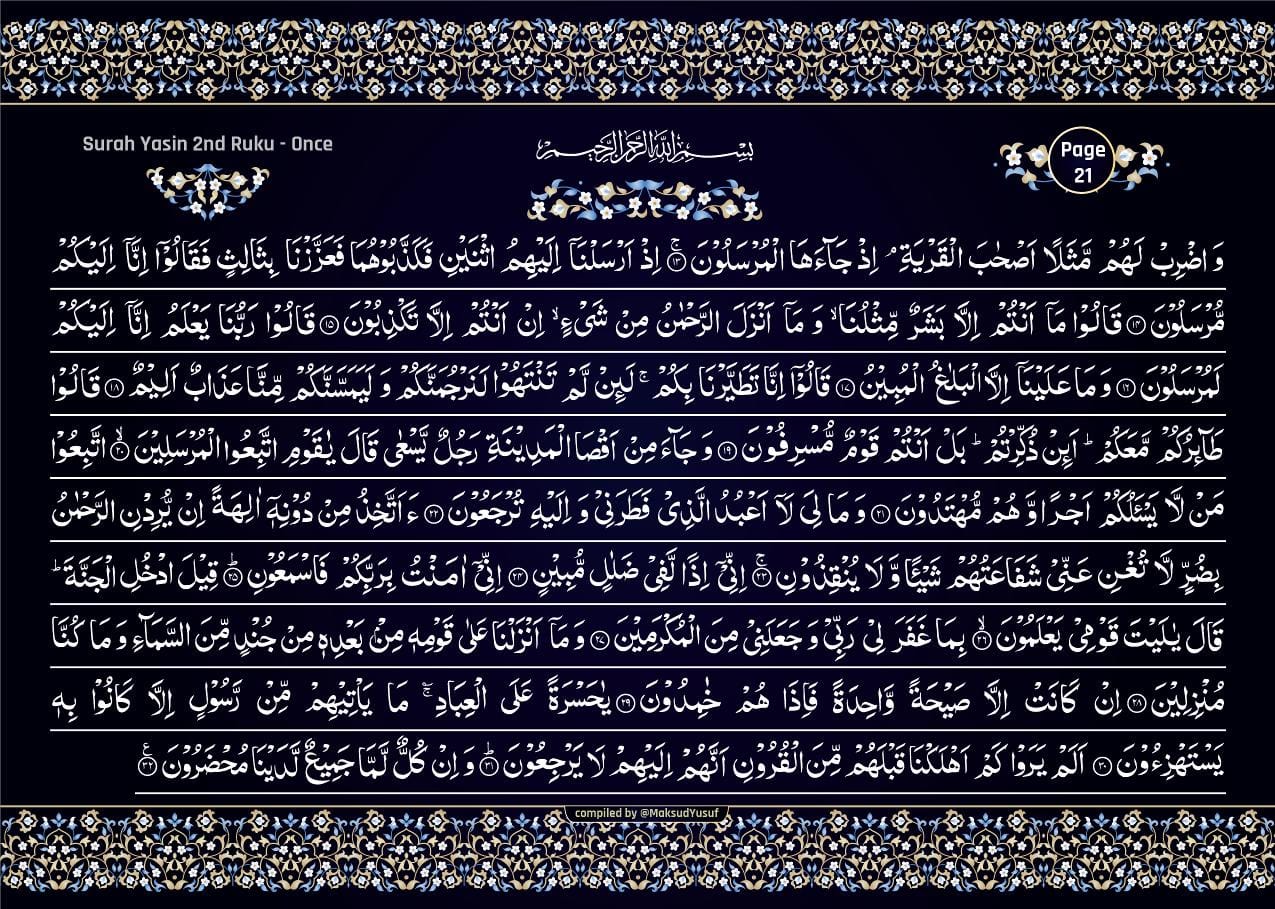 Surah Yasin 2nd Ruku - Once
بِسْمِ اللهِ الرَّحْمٰنِ الرَّحِيْمِ
Page
21
وَ اضْرِبْ لَهُمْ مَّثَلًا اَصْحٰبَ الْقَرْيَةِ ۘ اِذْ جَآءَهَا الْمُرْسَلُوْنَ ۚ﴿۱۳﴾ اِذْ اَرْسَلْنَاۤ اِلَيْهِمُ اثْنَيْنِ فَكَذَّبُوْهُمَا فَعَزَّزْنَا بِثَالِثٍ فَقَالُوْۤا اِنَّاۤ اِلَيْكُمْ
مُّرْسَلُوْنَ ﴿۱۴﴾ قَالُوْا مَاۤ اَنْتُمْ اِلَّا بَشَرٌ مِّثْلُنَا ۙ وَ مَاۤ اَنْزَلَ الرَّحْمٰنُ مِنْ شَیْءٍ ۙ اِنْ اَنْتُمْ اِلَّا تَكْذِبُوْنَ ﴿۱۵﴾ قَالُوْا رَبُّنَا يَعْلَمُ اِنَّاۤ اِلَيْكُمْ
لَمُرْسَلُوْنَ ﴿۱۶﴾ وَ مَا عَلَيْنَاۤ اِلَّا الْبَلٰغُ الْمُبِيْنُ ﴿۱۷﴾ قَالُوْۤا اِنَّا تَطَيَّرْنَا بِكُمْ ۚ لَئِنْ لَّمْ تَنْتَهُوْا لَنَرْجُمَنَّكُمْ وَ لَيَمَسَّنَّكُمْ مِّنَّا عَذَابٌ اَلِيْمٌ ﴿۱۸﴾ قَالُوْا
طَآئِرُكُمْ مَّعَكُمْ ؕ اَئِنْ ذُكِّرْتُمْ ؕ بَلْ اَنْتُمْ قَوْمٌ مُّسْرِفُوْنَ ﴿۱۹﴾ وَ جَآءَ مِنْ اَقْصَا الْمَدِيْنَةِ رَجُلٌ يَّسْعٰی قَالَ يٰقَوْمِ اتَّبِعُوا الْمُرْسَلِيْنَ ﴿ۙ۲۰﴾ اتَّبِعُوْا
مَنْ لَّا يَسْـَٔلُكُمْ اَجْرًا وَّ هُمْ مُّهْتَدُوْنَ ﴿۲۱﴾ وَ مَا لِیَ لَاۤ اَعْبُدُ الَّذِیْ فَطَرَنِیْ وَ اِلَيْهِ تُرْجَعُوْنَ ﴿۲۲﴾ ءَاَتَّخِذُ مِنْ دُوْنِهٖۤ اٰلِهَةً اِنْ يُّرِدْنِ الرَّحْمٰنُ
بِضُرٍّ لَّا تُغْنِ عَنِّیْ شَفَاعَتُهُمْ شَيْـًٔا وَّ لَا يُنْقِذُوْنِ ﴿ۚ۲۳﴾ اِنِّیْۤ اِذًا لَّفِیْ ضَلٰلٍ مُّبِيْنٍ ﴿۲۴﴾ اِنِّیْۤ اٰمَنْتُ بِرَبِّكُمْ فَاسْمَعُوْنِ ﴿ؕ۲۵﴾ قِيْلَ ادْخُلِ الْجَنَّةَ ؕ
قَالَ يٰلَيْتَ قَوْمِیْ يَعْلَمُوْنَ ﴿ۙ۲۶﴾ بِمَا غَفَرَ لِیْ رَبِّیْ وَ جَعَلَنِیْ مِنَ الْمُكْرَمِيْنَ ﴿۲۷﴾ وَ مَاۤ اَنْزَلْنَا عَلٰی قَوْمِهٖ مِنْۢ بَعْدِهٖ مِنْ جُنْدٍ مِّنَ السَّمَآءِ وَ مَا كُنَّا
مُنْزِلِيْنَ ﴿۲۸﴾ اِنْ كَانَتْ اِلَّا صَيْحَةً وَّاحِدَةً فَاِذَا هُمْ خٰمِدُوْنَ ﴿۲۹﴾ يٰحَسْرَةً عَلَی الْعِبَادِ ۚ مَا يَاْتِيْهِمْ مِّنْ رَّسُوْلٍ اِلَّا كَانُوْا بِهٖ
يَسْتَهْزِءُوْنَ ﴿۳۰﴾ اَلَمْ يَرَوْا كَمْ اَهْلَكْنَا قَبْلَهُمْ مِّنَ الْقُرُوْنِ اَنَّهُمْ اِلَيْهِمْ لَا يَرْجِعُوْنَ ﴿ؕ۳۱﴾ وَ اِنْ كُلٌّ لَّمَّا جَمِيْعٌ لَّدَيْنَا مُحْضَرُوْنَ ﴿۳۲﴾
compiled by @MaksudYusuf